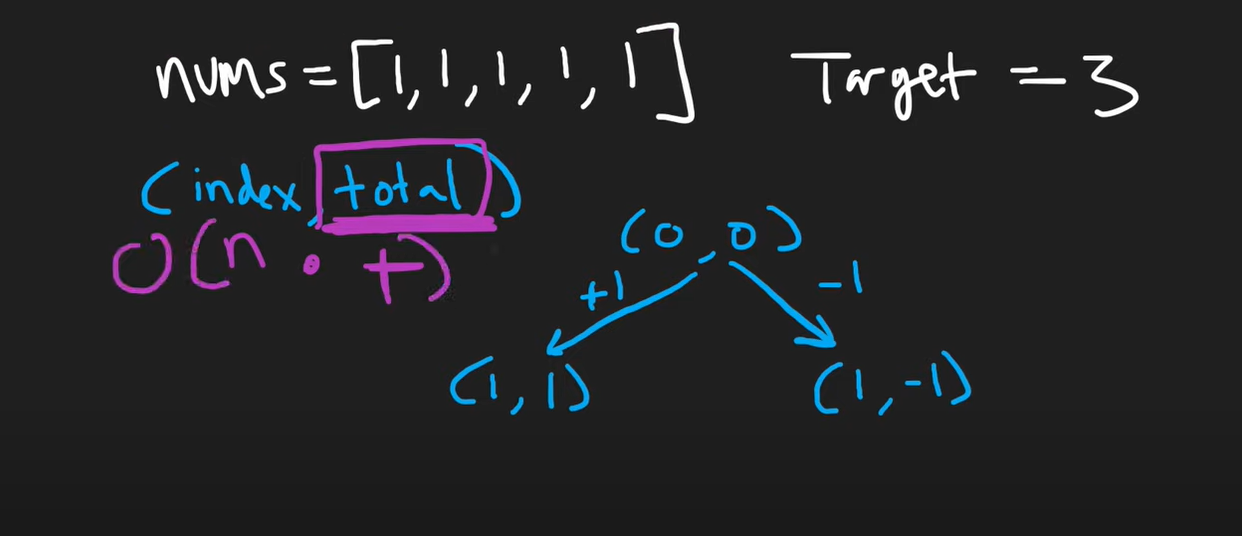 nums = [1, 1, 1, 1, 1]
Target = 3
(index, total)
O(n · t)
(0, 0)
+1
-1
(1, 1)
(1, -1)